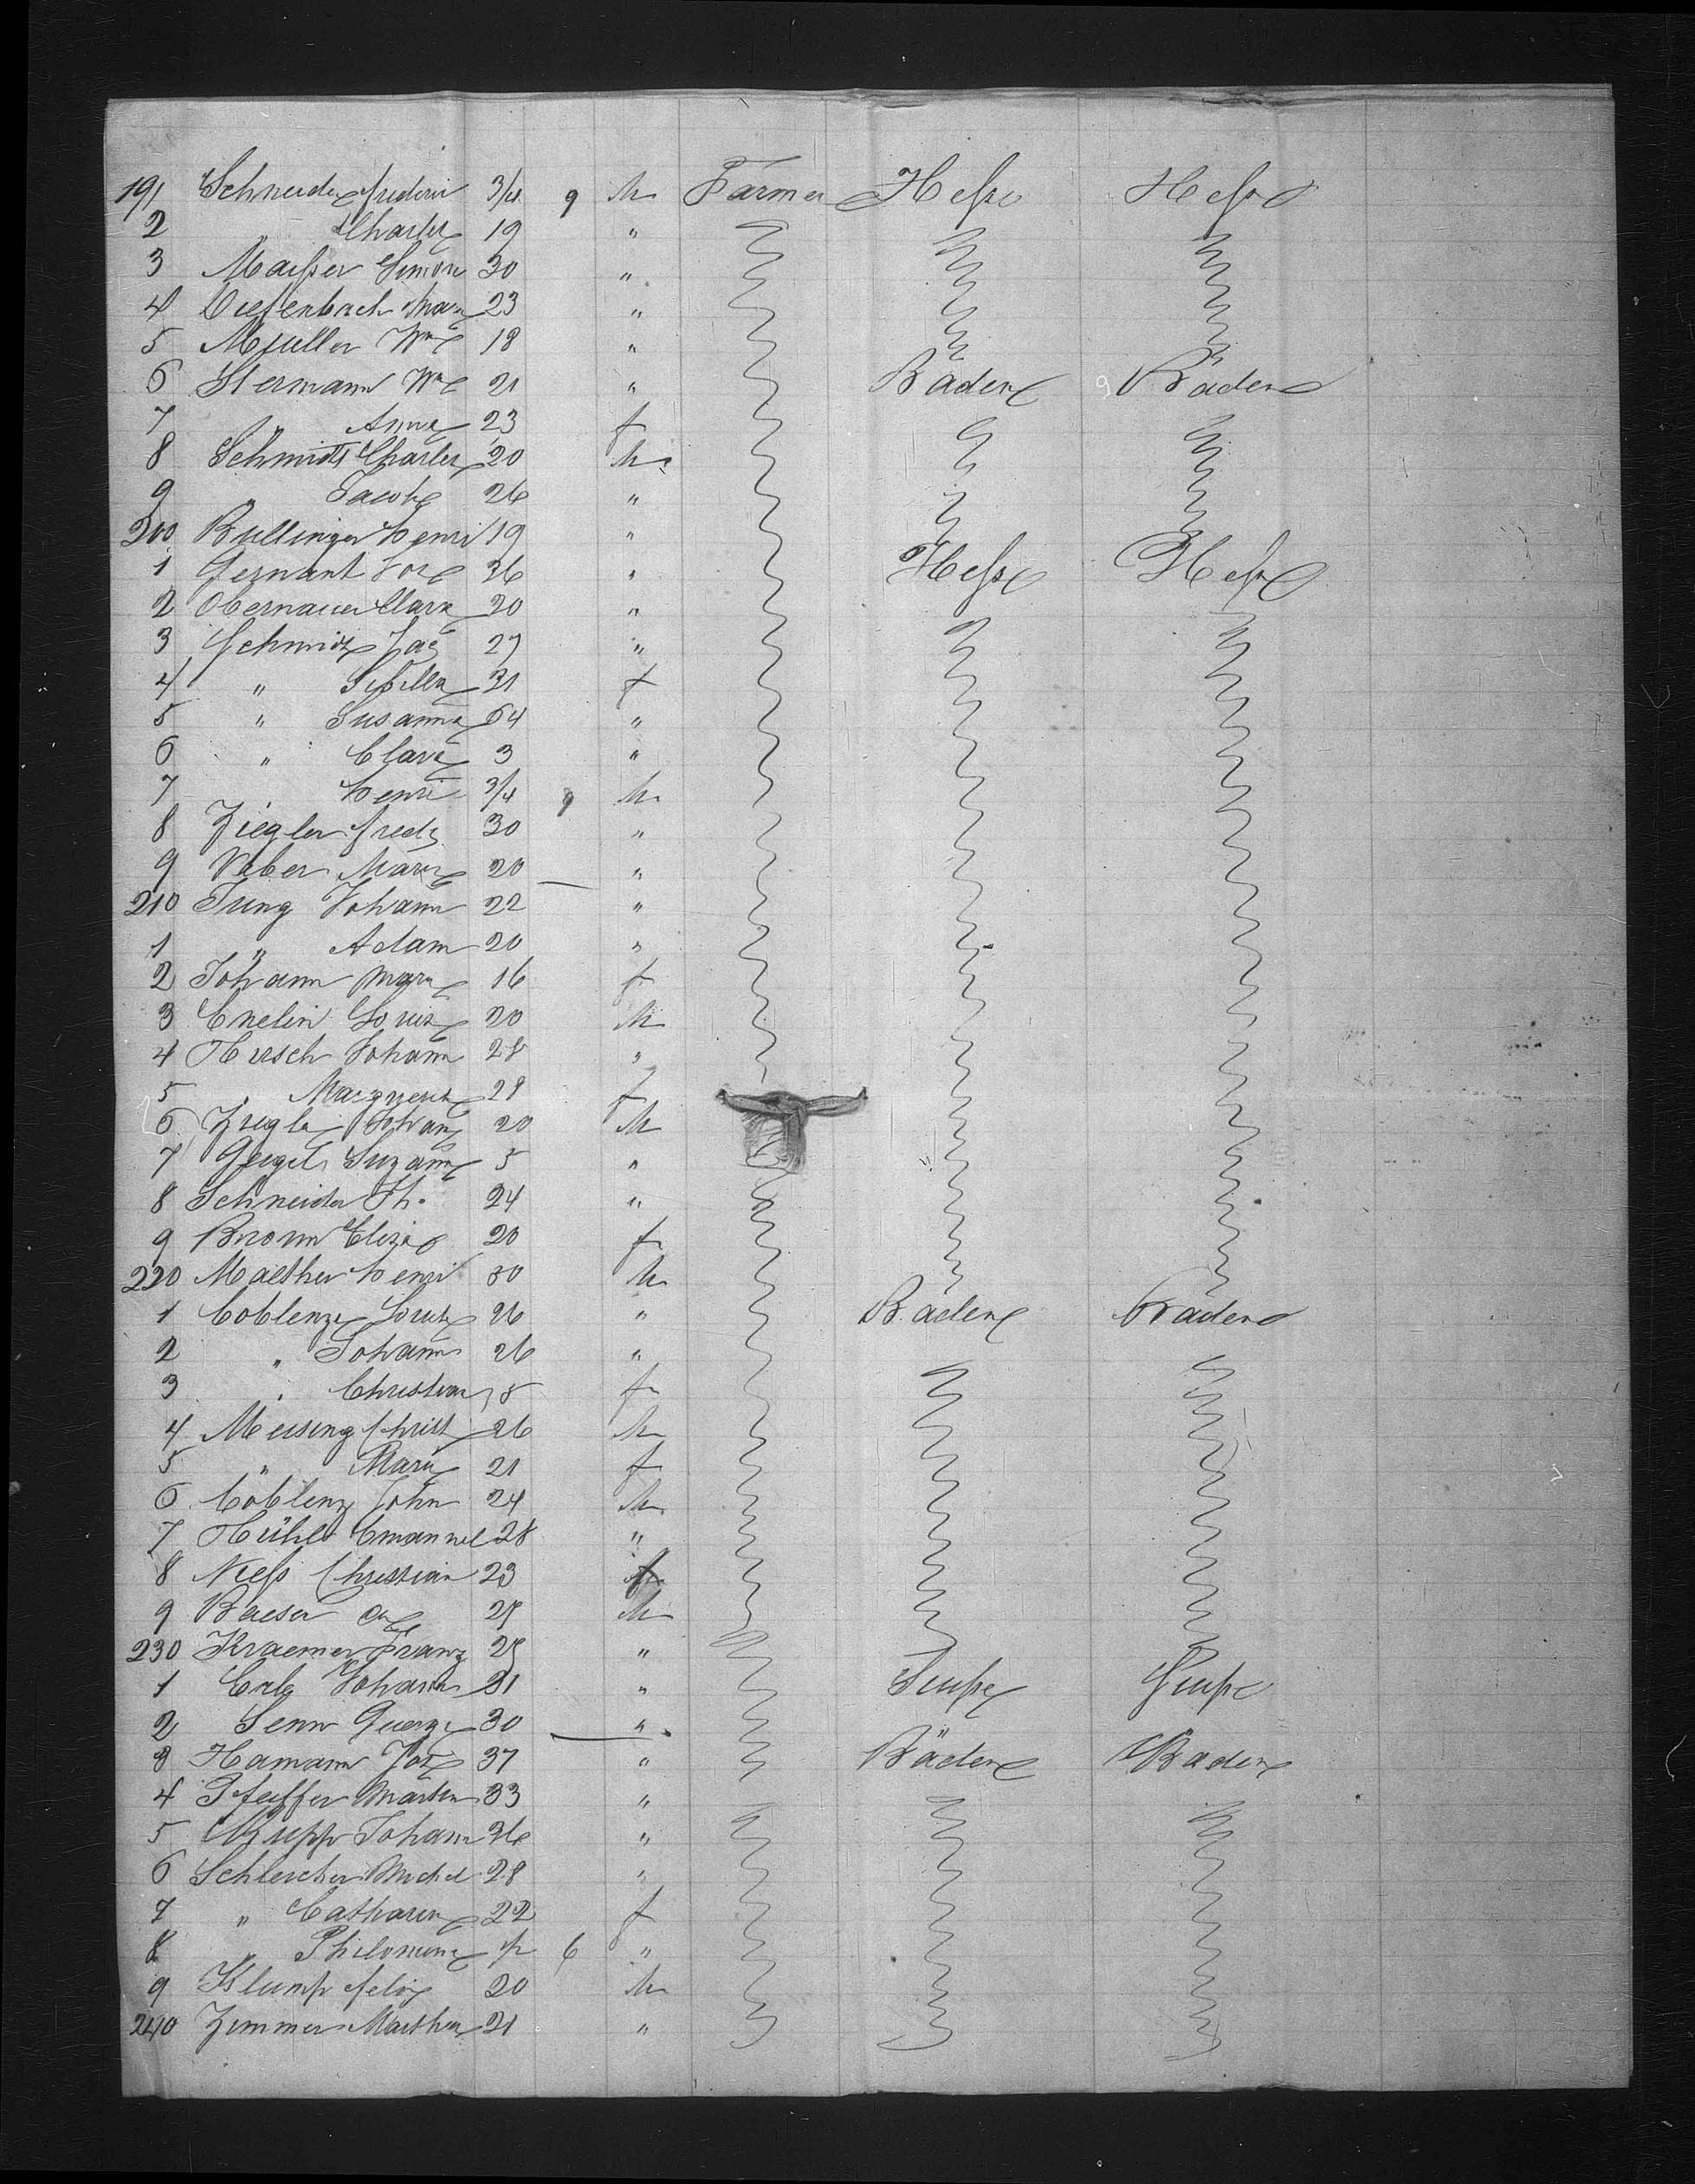 191 Schneider frederic 3/4 9 M Farmer Hesse Hesse
2 " Charles 19 "
3 Maisser Simon 30 "
4 Diefenbach 23 "
5 Muller Wm 18 "
6 Stermann Wm 21 " Baden Baden
7 " Anna 23 f
8 Schmidt Charles 20 M
9 " Jacob 26 "
200 Bullinger Henri 19 "
1 Gernant 36 "
2 Obernauer 20 "
3 Schmitz Jac 27 "
4 " Sibilla 31 f
5 " Susanna 64 "
6 " Clara 3 "
7 Henri 3/4 9 M
8 Ziegler fred 30 "
9 Weber Marx 20 "
210 Jung Johann 22 "
1 " Adam 20 "
2 Johann Maria 16 f
3 Enelin Louis 20 M
4 Hirsch Johann 28 "
5 " Margueret 28 f
6 Johann 20 M
7 Suzann 5 "
8 Schneider Th. 24 "
9 Brown Eliza 20 f
220 Maether Henri 30 M
1 Coblenz Louis 26 " Baden Baden
2 " Johann 26 "
3 " Christian 28 f
4 Meising Christ 26 M
5 " Maria 21 f
6 Coblenz John 24 M
7 Hühle Emanuel 28 "
8 Niess Christian 23
9 Baeser 28 M
230 Kraemer Franz 28 "
1 Johann 31 "
2 Senn George 30 "
3 Hamann Jos 37 " Baden Baden
4 Pfeiffer Martin 33 "
5 Rupp Johann 36 "
6 Schleicher Michel 28 "
7 " Catharin 22 f
8 " Philomene 1/2 6 "
9 Klump felix 20 M
240 Zimmer Mathias 21 "